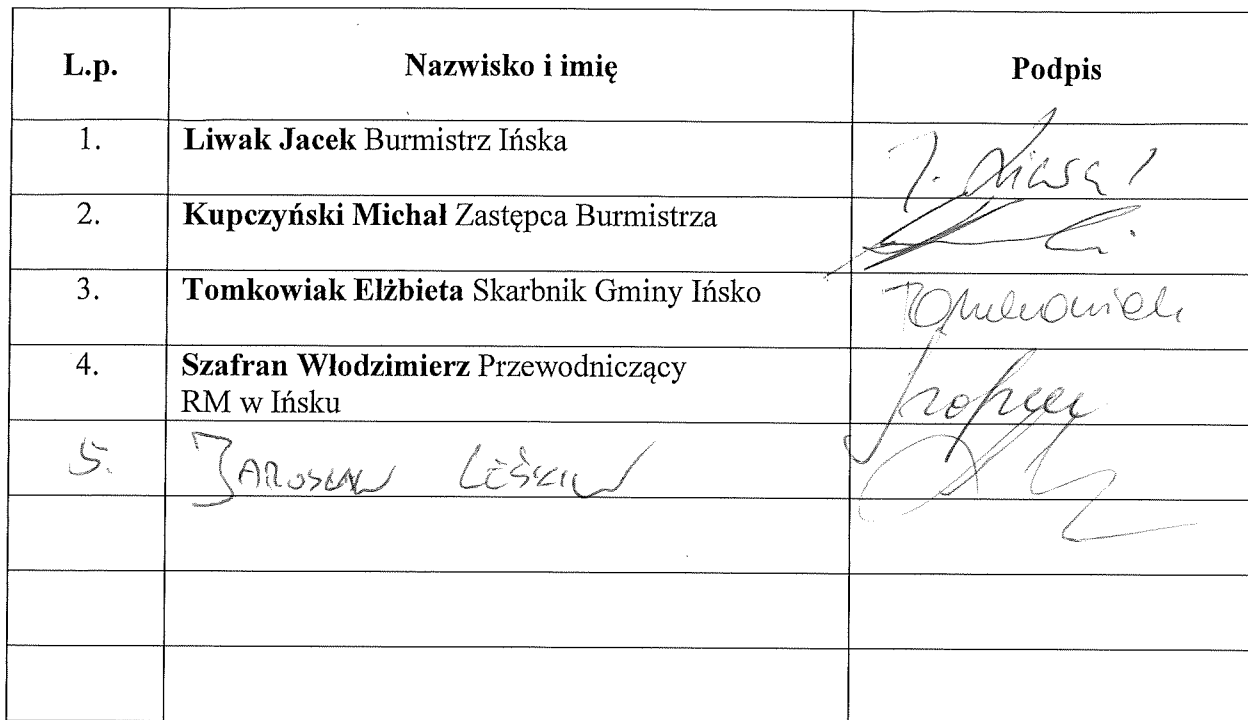 L.p. Nazwisko i imię Podpis
1. Liwak Jacek Burmistrz Ińska
2. Kupczyński Michał Zastępca Burmistrza
3. Tomkowiak Elżbieta Skarbnik Gminy Ińsko Tomkowiak
4. Szafran Włodzimierz Przewodniczący
RM w Ińsku
5. JAROSŁAW LEŚKIW